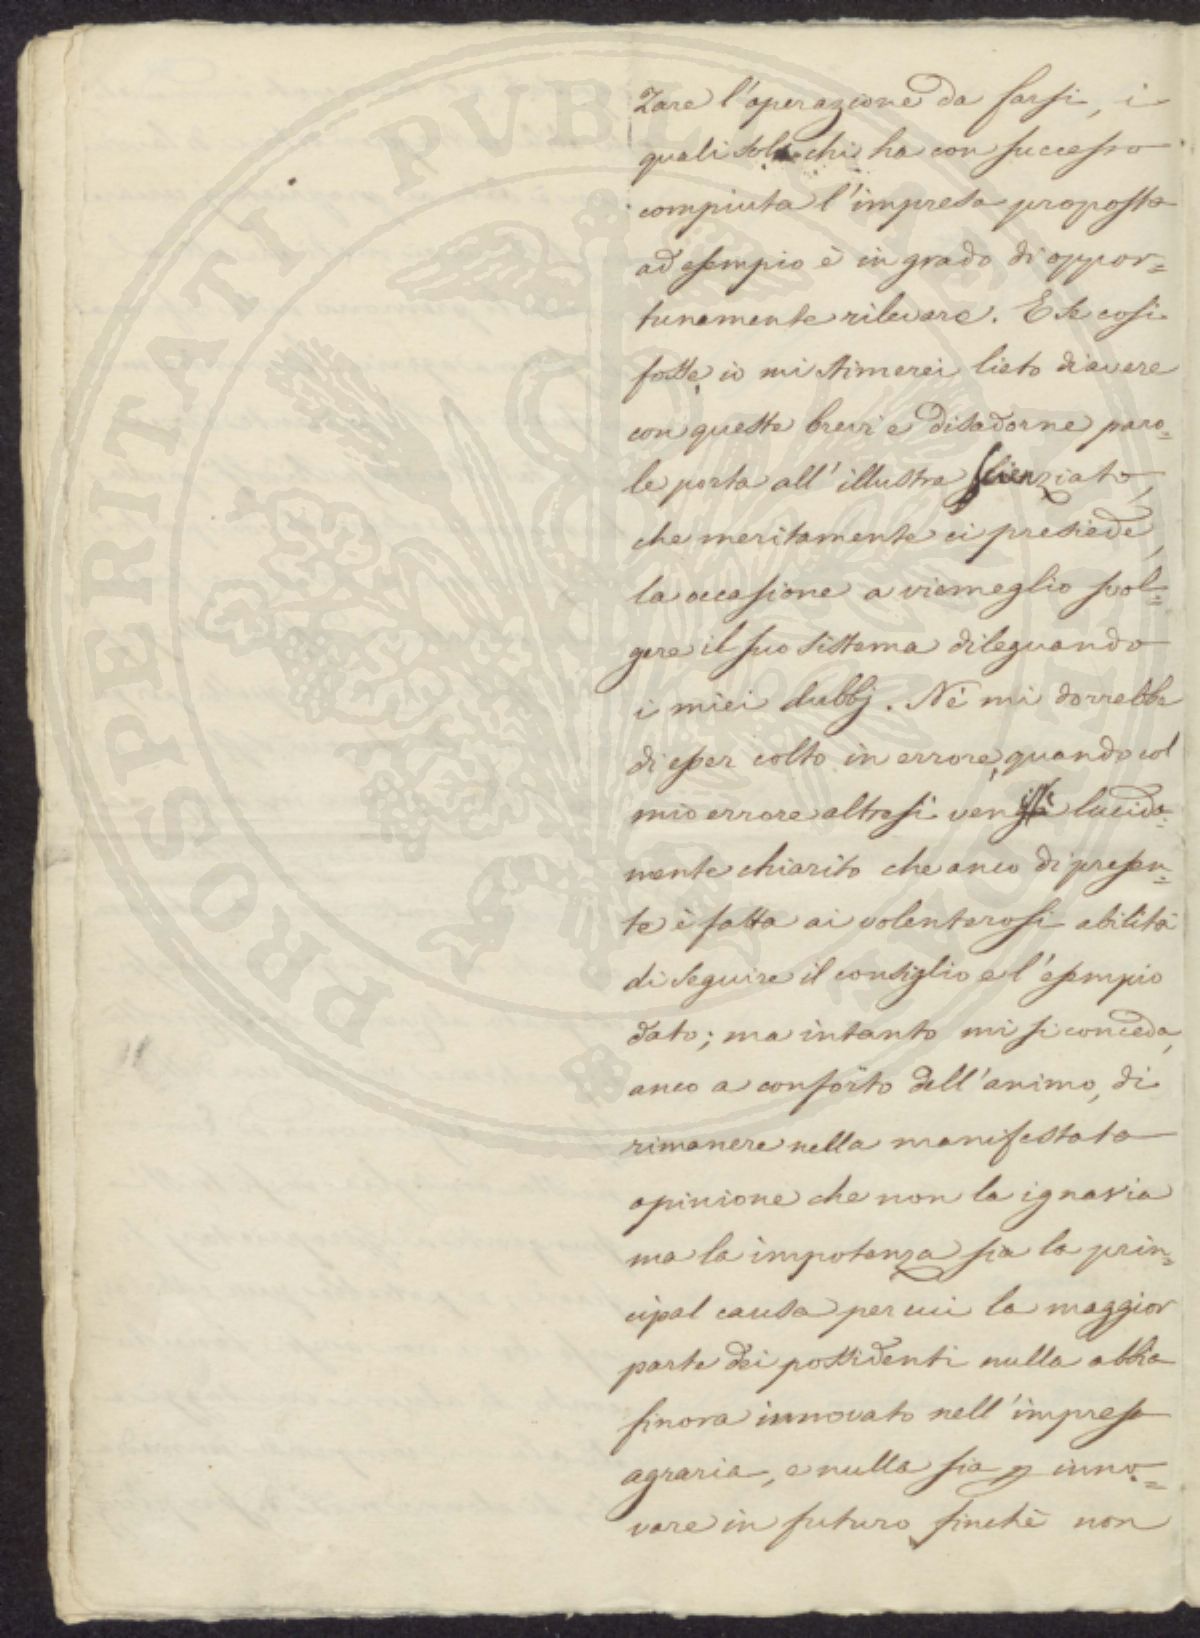 zare l'operazione da farsi, i
quali solo chi ha con successo
compiuta l'impresa proposta
ad esempio è in grado di oppor=
tunamente rilevare. E se così
fosse, io mi stimerei lieto di avere
con queste brevi e disadorne paro=
le porta all'illustre Scienziato,
che meritamente ci presiede,
la occasione a viemeglio svol=
gere il suo sistema dileguando
i miei dubbj. Nè mi dorrebbe
di esser colto in errore, quando col
mio errore altresì venisse lucida=
mente chiarito che anco di presen=
te è fatta ai volenterosi abilità
di seguire il consiglio e l'esempio
dato; ma intanto mi si conceda,
anco a conforto dell'animo, di
rimanere nella manifestata
opinione che non la ignavia
ma la impotenza sia la prin=
cipal causa per cui la maggior
parte dei possidenti nulla abbia
finora innovato nell'impresa
agraria, e nulla sia p inno=
vare in futuro, finchè non
PROSPERITATI PUBLICAE AUGENDAE